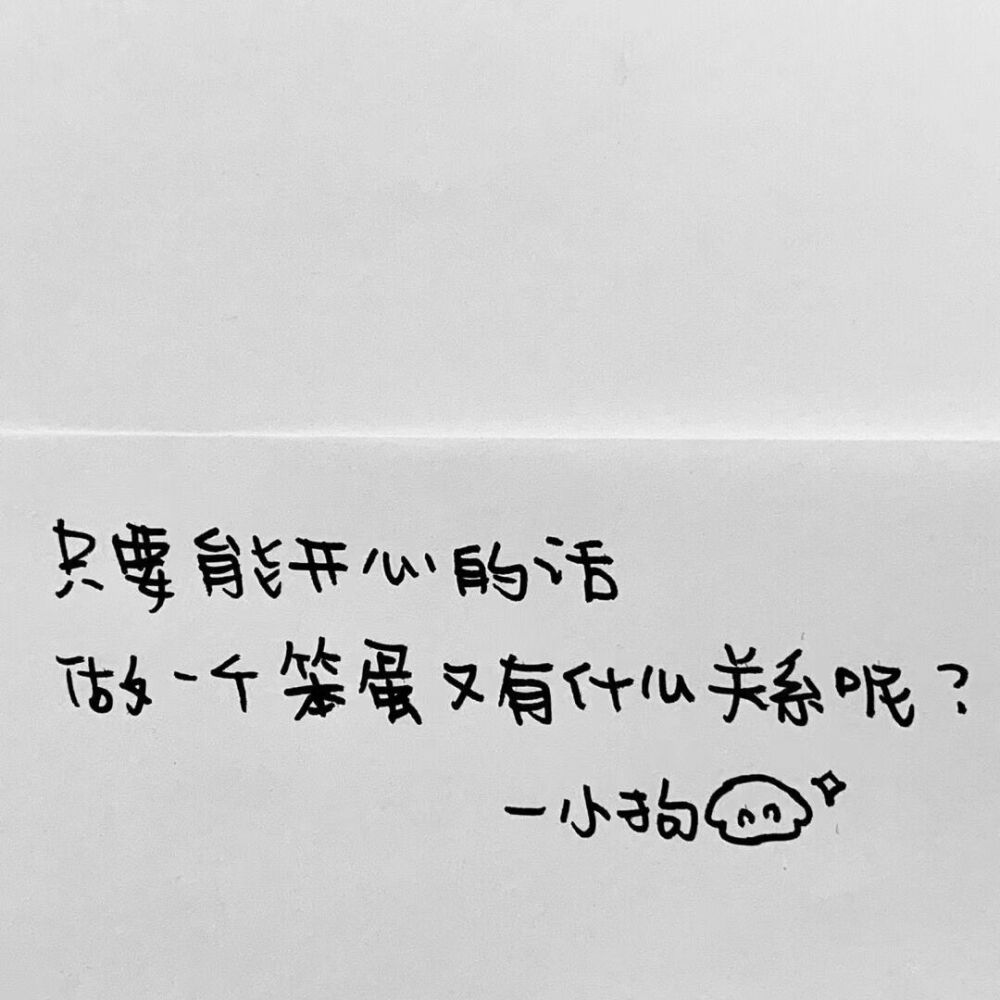 只要能开心的话
做一个笨蛋又有什么关系呢?
一小狗